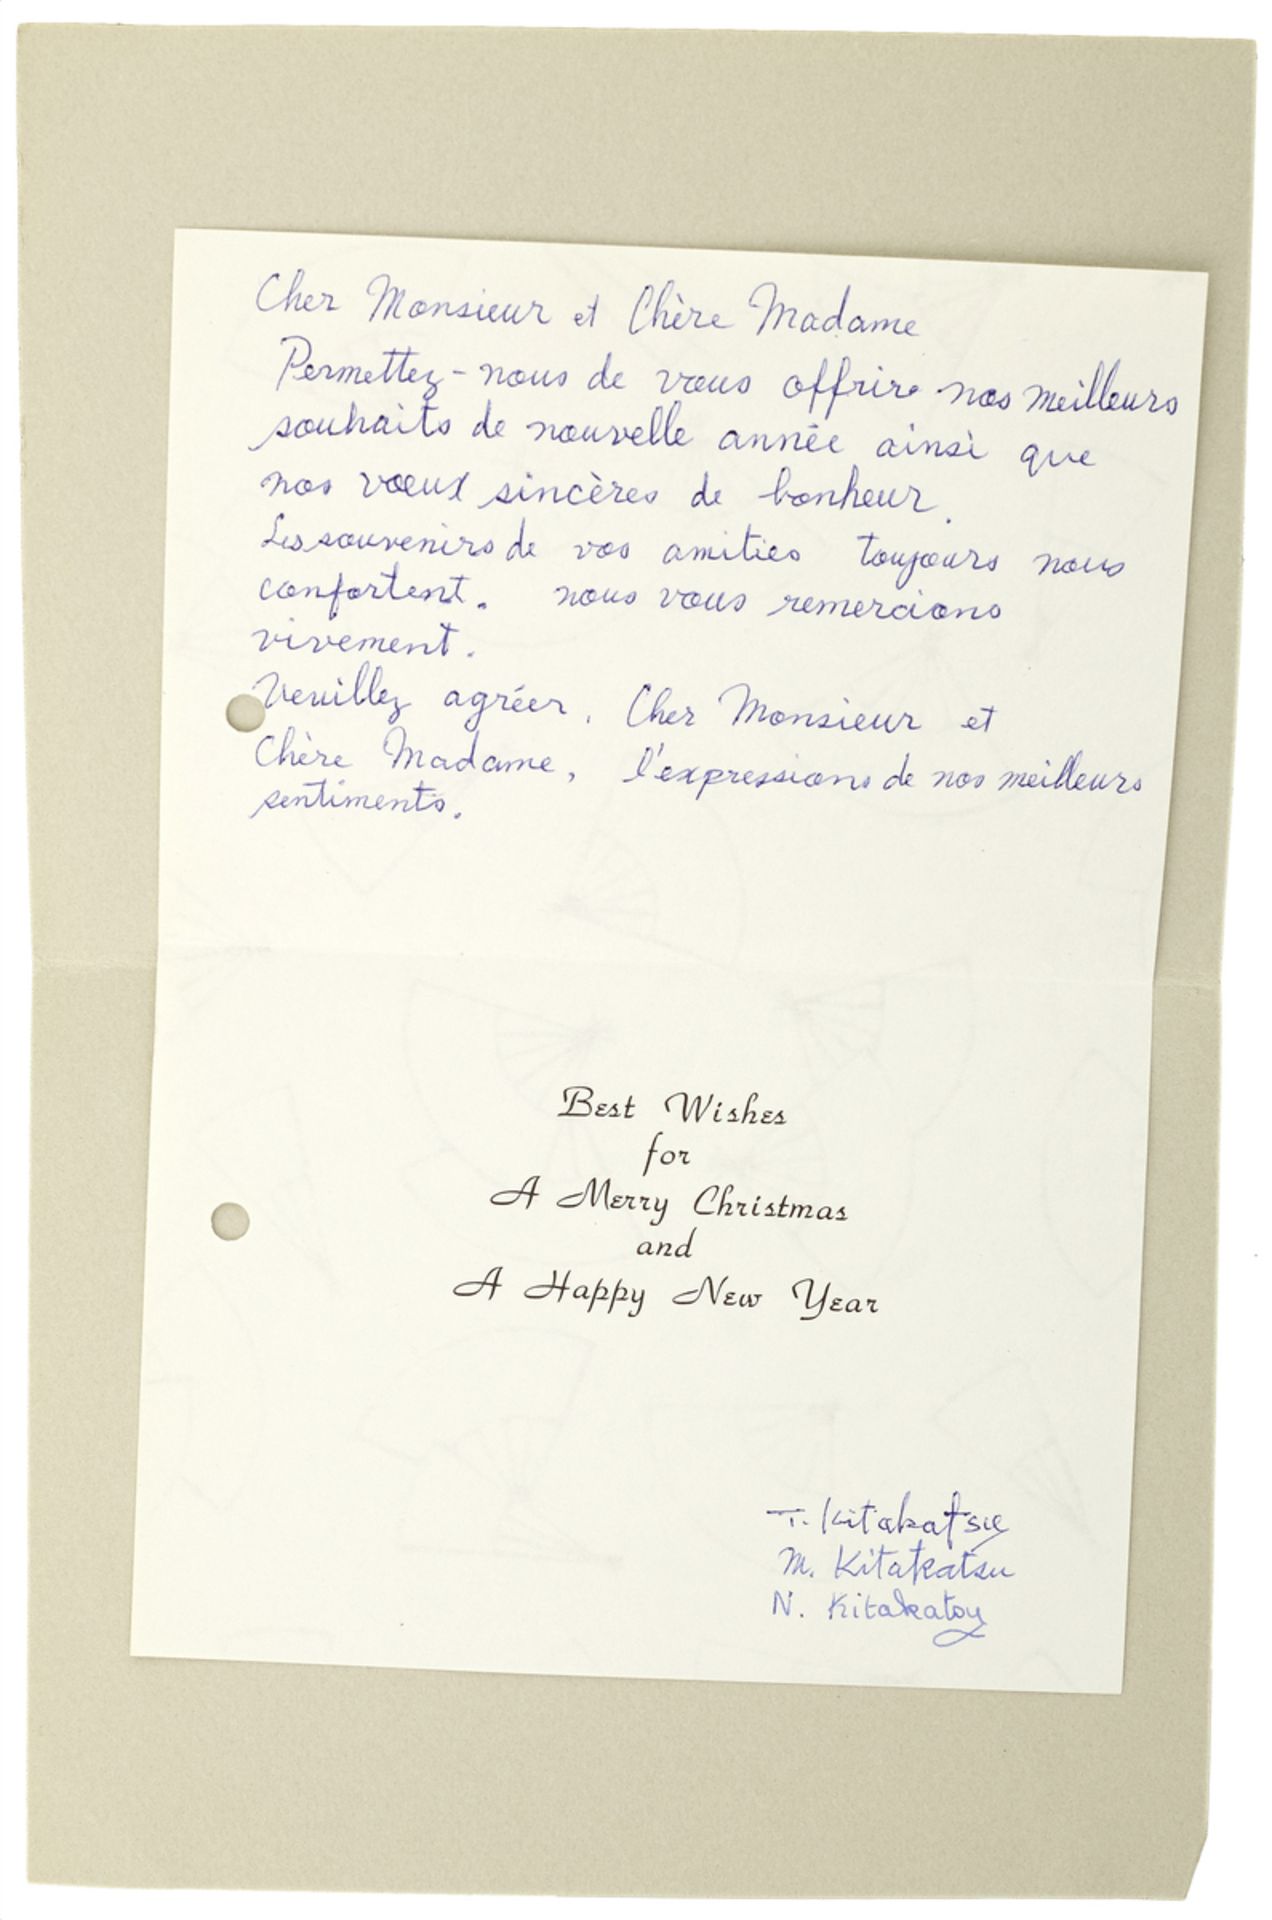 Cher Monsieur et Chère Madame
Permettez-nous de vous offrir nos meilleurs
souhaits de nouvelle année ainsi que
nos vœux sincères de bonheur.
Les souvenirs de vos amities toujours nous
confortent. nous vous remercions
vivement.
Veuillez agréer, Cher Monsieur et
Chère Madame, l'expressions de nos meilleurs
sentiments.
Best Wishes
for
A Merry Christmas
and
A Happy New Year
T. Kitakatsu
M. Kitakatsu
N. Kitakatsu